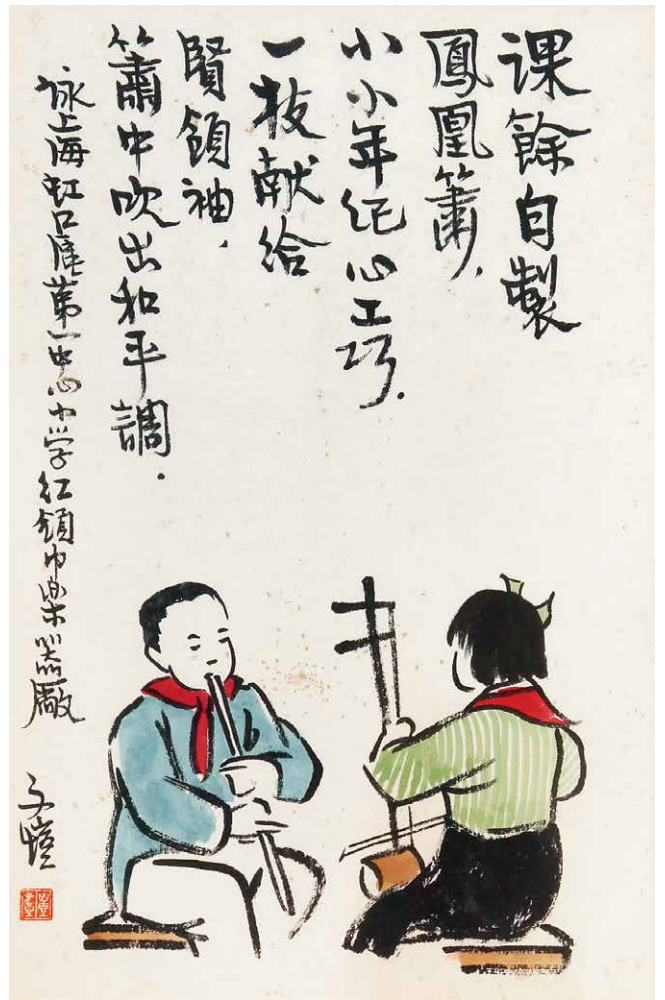 课餘自製
鳳凰簫，
小小年纪心工巧.
一枝献给
賢領袖，
簫中吹出和平調.
詠上海虹口區第一中心小学红領巾楽器廠
子愷